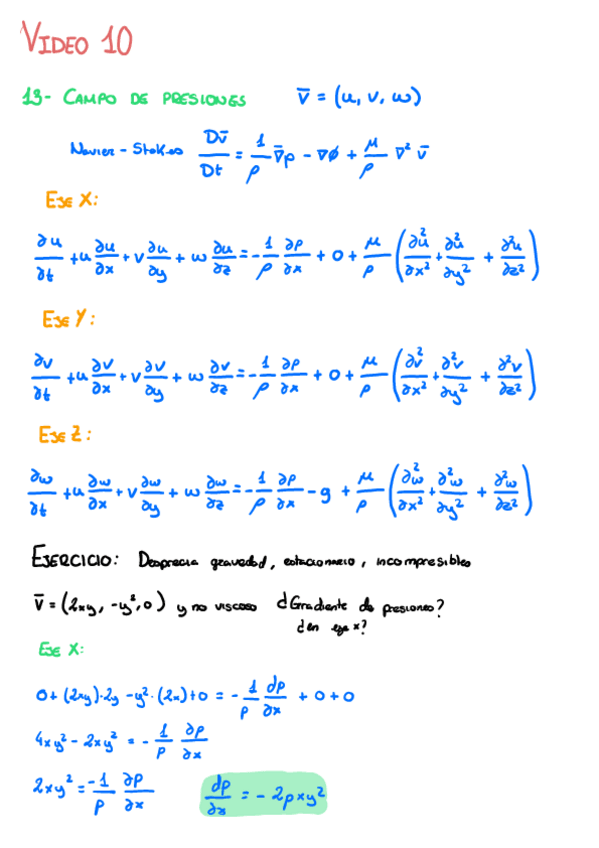 VIDEO 10
13- CAMPO DE PRESIONES   v̄ = (u, v, w)
Navier-Stokes   Dv̄/Dt = 1/ρ ∇̄p - ∇ø + μ/ρ ∇² v̄
EJE X:
∂u/∂t + u ∂u/∂x + v ∂u/∂y + w ∂u/∂z = - 1/ρ ∂p/∂x + 0 + μ/ρ (∂²u/∂x² + ∂²u/∂y² + ∂²u/∂z²)
EJE Y:
∂v/∂t + u ∂v/∂x + v ∂v/∂y + w ∂v/∂z = - 1/ρ ∂p/∂x + 0 + μ/ρ (∂²v/∂x² + ∂²v/∂y² + ∂²v/∂z²)
EJE Z:
∂w/∂t + u ∂w/∂x + v ∂w/∂y + w ∂w/∂z = - 1/ρ ∂p/∂x - g + μ/ρ (∂²w/∂x² + ∂²w/∂y² + ∂²w/∂z²)
EJERCICIO: Desprecia gravedad, estacionario, incompresibles
v̄ = (2xy, -y², 0) y no viscoso ¿Gradiente de presiones?
¿en eje x?
EJE X:
0 + (2xy)·2y - y²·(2x) + 0 = - 1/ρ dp/∂x + 0 + 0
4xy² - 2xy² = - 1/ρ ∂p/∂x
2xy² = -1/ρ ∂p/∂x   dp/∂x = - 2ρxy²